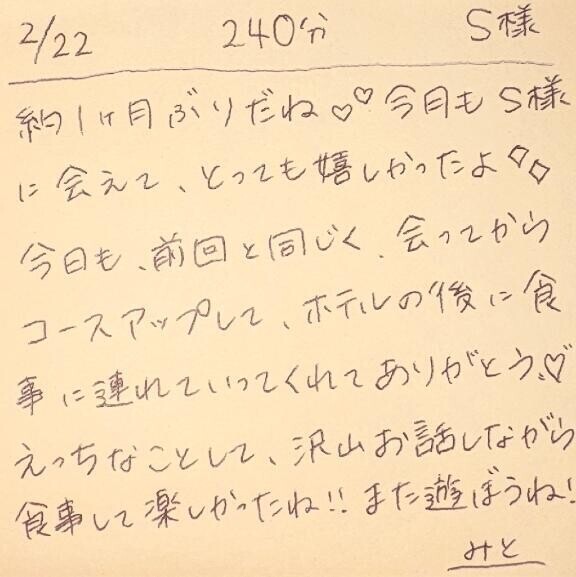 2/22 240分 S様
約1ヶ月ぶりだね♡♡今月もS様
に会えて、とっても嬉しかったよ◇◇
今日も、前回と同じく、会ってから
コースアップして、ホテルの後に食
事に連れていってくれてありがとう、♡
えっちなことして、沢山お話しながら
食事して楽しかったね!!また遊ぼうね!
みと